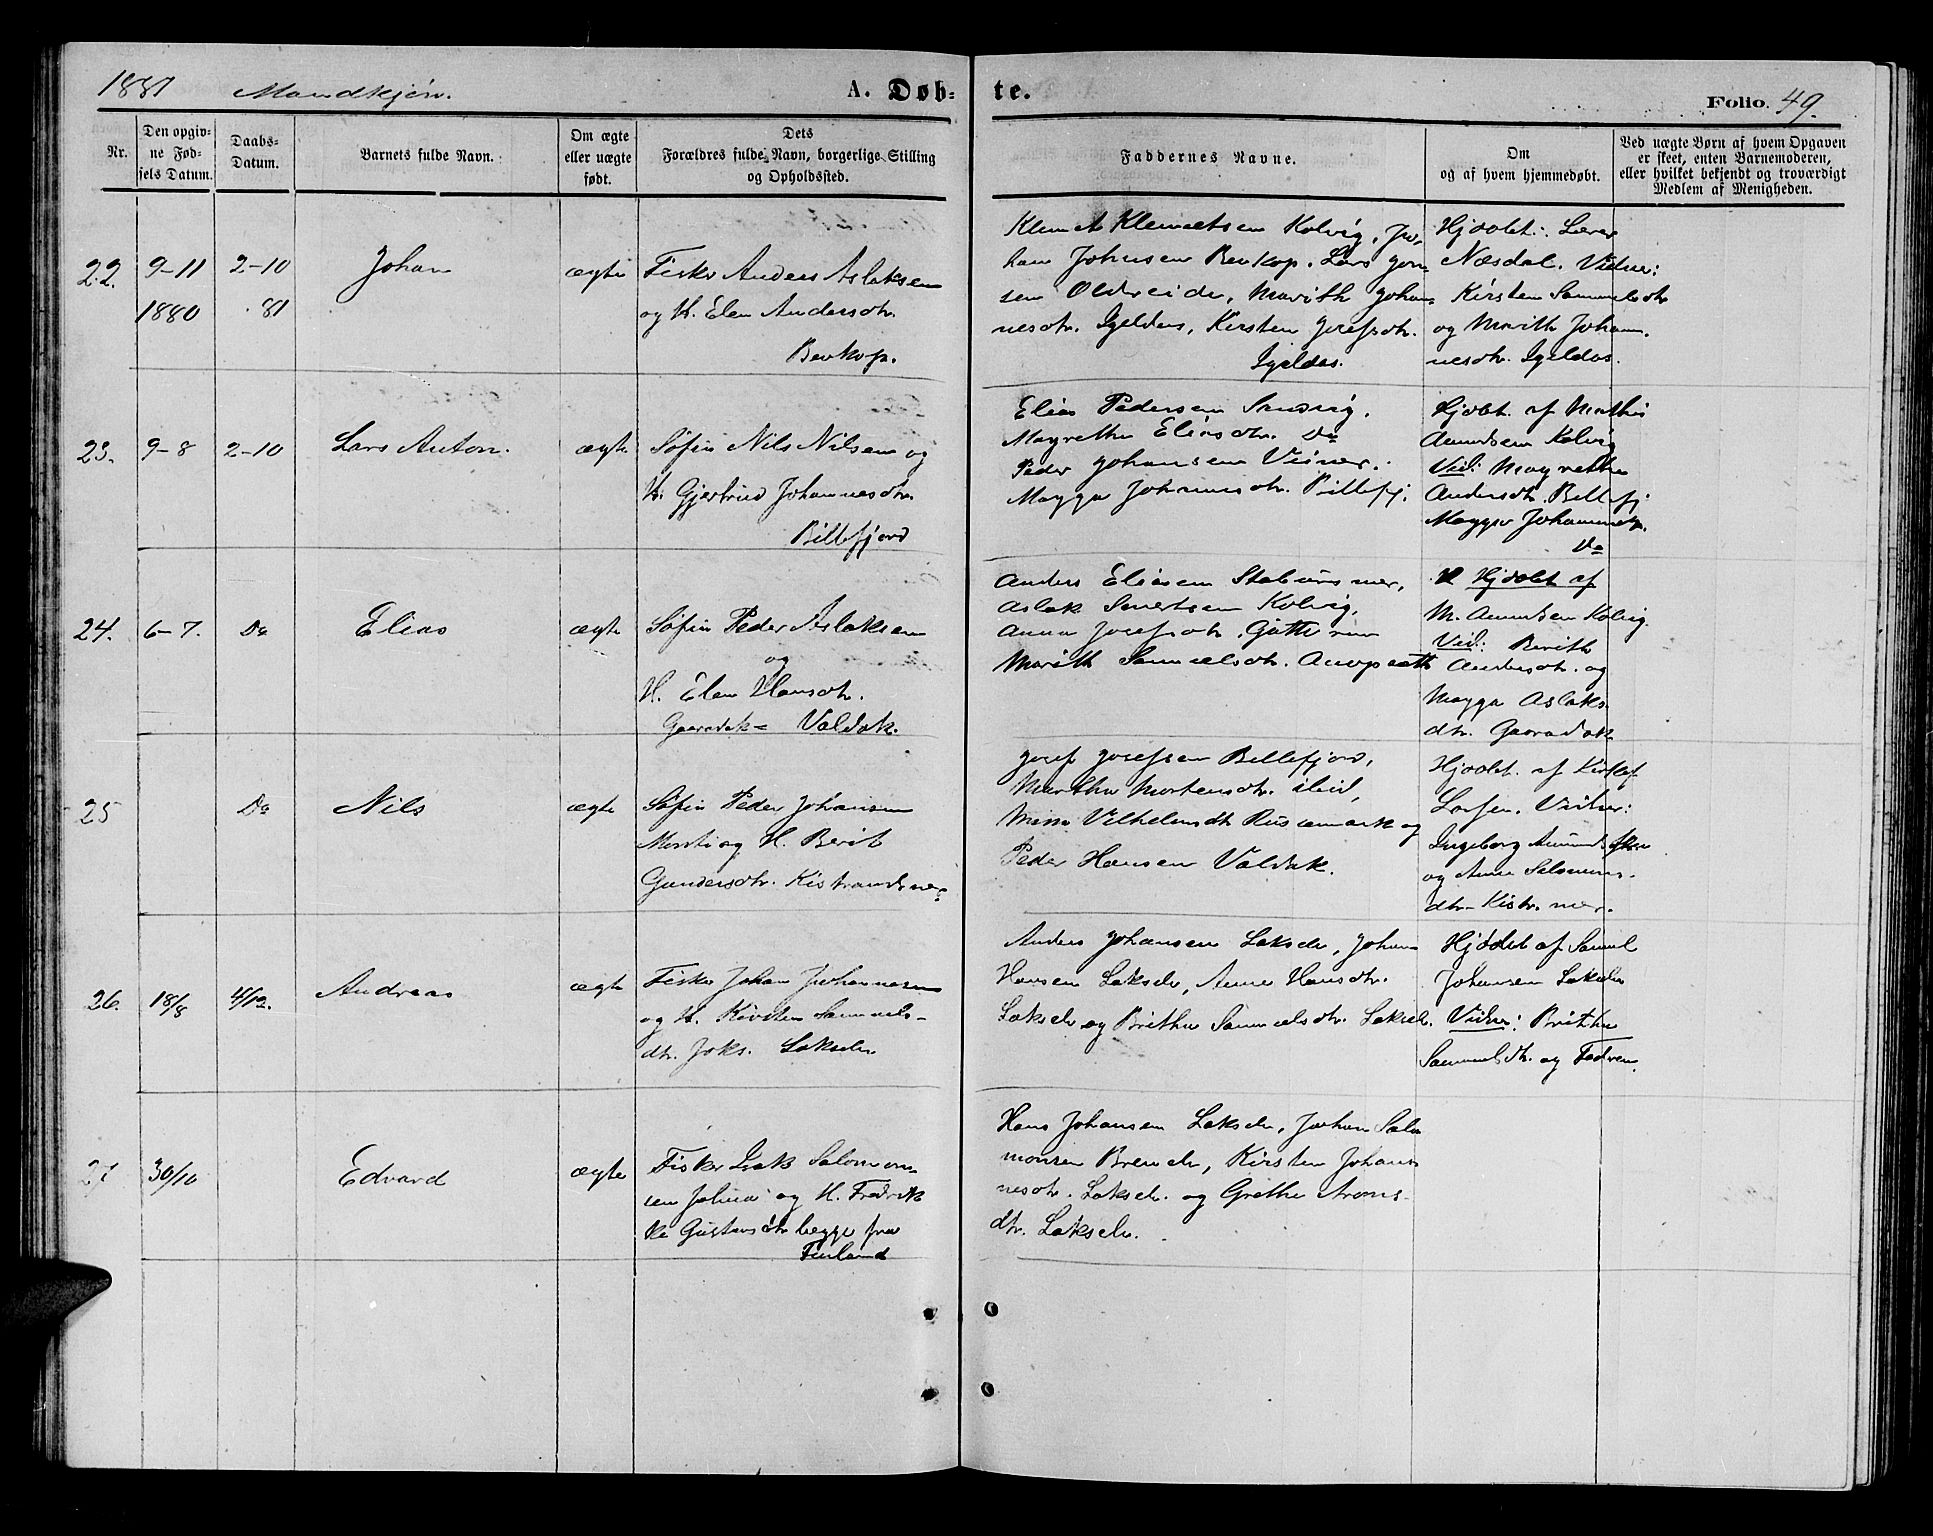 1881 Mandkjøn. A. Døb- te. Folio. 49.
Nr.
Den opgiv-
ne Fød-
sels Datum.
Daabs-
Datum.
Barnets fulde Navn.
Om ægte
eller uægte
født.
Dets
Forældres fulde Navn, borgerlige Stilling
og Opholdssted.
Faddernes Navne.
Om
og af hvem hjemmedøbt.
Ved uægte Børn af hvem Opgaven
er skeet, enten Barnemoderen,
eller hvilket bekjendt og troværdigt
Medlem af Menigheden.
22. 9-11 2-10 Johan ægte
1880 81
Fisker Anders Aslaksen
og H. Elen Andersdtr.
Bevkop.
Klemet Klemetsen Kolvig, Jo-
han Johnsen Bevkop. Lars
sen Oldereide, Marith Johan-
nesdtr. Igeldas, Kirsten Josefsdtr.
Igeldas.
Hjdøbt: Lærer
Næsdal. Vidner:
Kirsten Samuelsdtr
og Marith Johan-
nesdtr. Igeldas.
23. 9-8 2-10 Lars Anton. ægte
Søfin Nils Nilsen og
H. Gjertrud Johannesdtr.
Billefjord
Elias Pedersen Sandvig.
Magrethe Eliasdtr. Do
Peder Johansen
Magga Johannesdtr. Billefj.
Hjdøbt. af Mathis
Amundsen Kolvig
Vid: Magrethe
Andersdtr. Billefj
Magga Johannesdtr.
Do
24. 6-7. Do Elias ægte
Søfin Peder Aslaksen
og
H. Elen Hansdtr.
Gaaradak - Valdak.
Anders Eliasen
Aslak Kolvig.
Anna Josefsdtr.
Marith Samuelsdtr.
Hjdøbt af
M. Amundsen Kolvig.
Vid: Berith
Andersdtr. og
Magga Aslaks-
dtr. Gaaradak
25 Do Nils ægte
Søfin Peder Johansen
og H. Berit
Gundersdtr. Kistrands
Josef Josefsen Billefjord,
Martha Mortensdtr. ibid,
Vilhelmsdtr og
Peder Hansen Valdak.
Hjdøbt. af
Larsen. Vidner:
Ingeborg
og Anne Salomons-
dtr. Kistr.
26. 18/8 4/12. Andreas ægte
Fisker Johan Johannesen
og H. Kirsten Samuels-
dtr. Joks. Lakselv
Anders Johansen Lakselv, Johan
Hansen Lakselv, Anne Hansdtr.
Lakselv og Brithe Samuelsdtr. Lakselv.
Hjdøbt af Samuel
Johansen Lakselv
Vidner: Brithe
Samuelsdtr. og Fadren.
27 30/10 Edvard ægte
Fisker Isak Salomon-
sen og H. Fredrik
ke Gustavsdtr begge fra
Finland
Hans Johansen Lakselv, Johan Salo
monsen Brenelv, Kirsten Johan-
nesdtr. Lakselv. og Grethe Arons-
dtr. Lakselv.